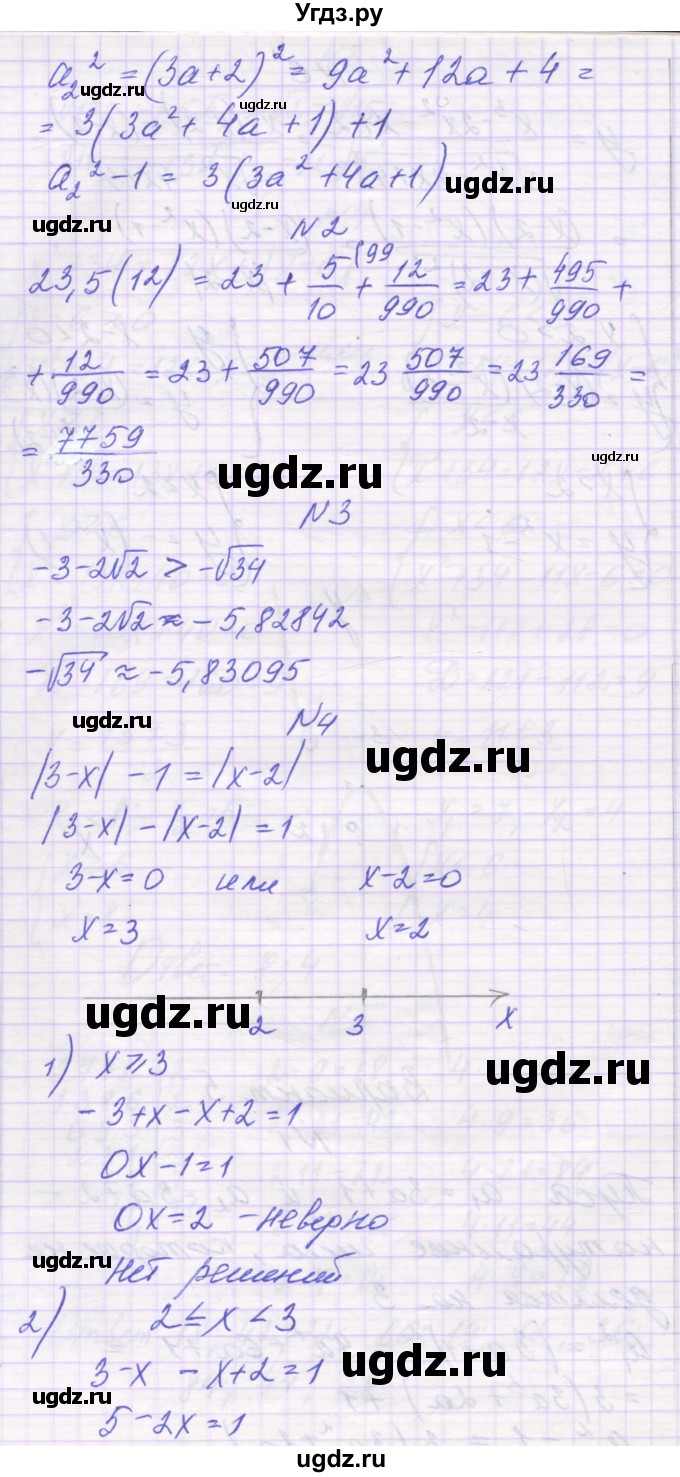 Угдз.ру
a₂² = (3a+2)² = 9a² + 12a + 4 =
ugdz.ru
= 3(3a² + 4a + 1) + 1
ugdz.ru
a₂² - 1 = 3(3a² + 4a + 1)
ugdz.ru
ugdz.ru
ugdz.ru
N2
23,5(12) = 23 + 5/10 (99 + 12/990 = 23 + 495/990 +
+ 12/990 = 23 + 507/990 = 23 507/990 = 23 169/330 =
ugdz.ru
= 7759/330
ugdz.ru
N3
-3-2√2 > -√34
-3-2√2 ≈ -5,82842
-√34 ≈ -5,83095
ugdz.ru
N4
ugdz.ru
|3-x| - 1 = |x-2|
|3-x| - |x-2| = 1
3-x=0 или x-2=0
x=3 x=2
ugdz.ru
2 3 x
1) x ≥ 3
ugdz.ru
-3+x-x+2=1
0x-1=1
0x=2 - неверно
ugdz.ru
Нет решений
2) 2 ≤ x < 3
ugdz.ru
3-x -x+2=1
ugdz.ru
5-2x=1
ugdz.ru